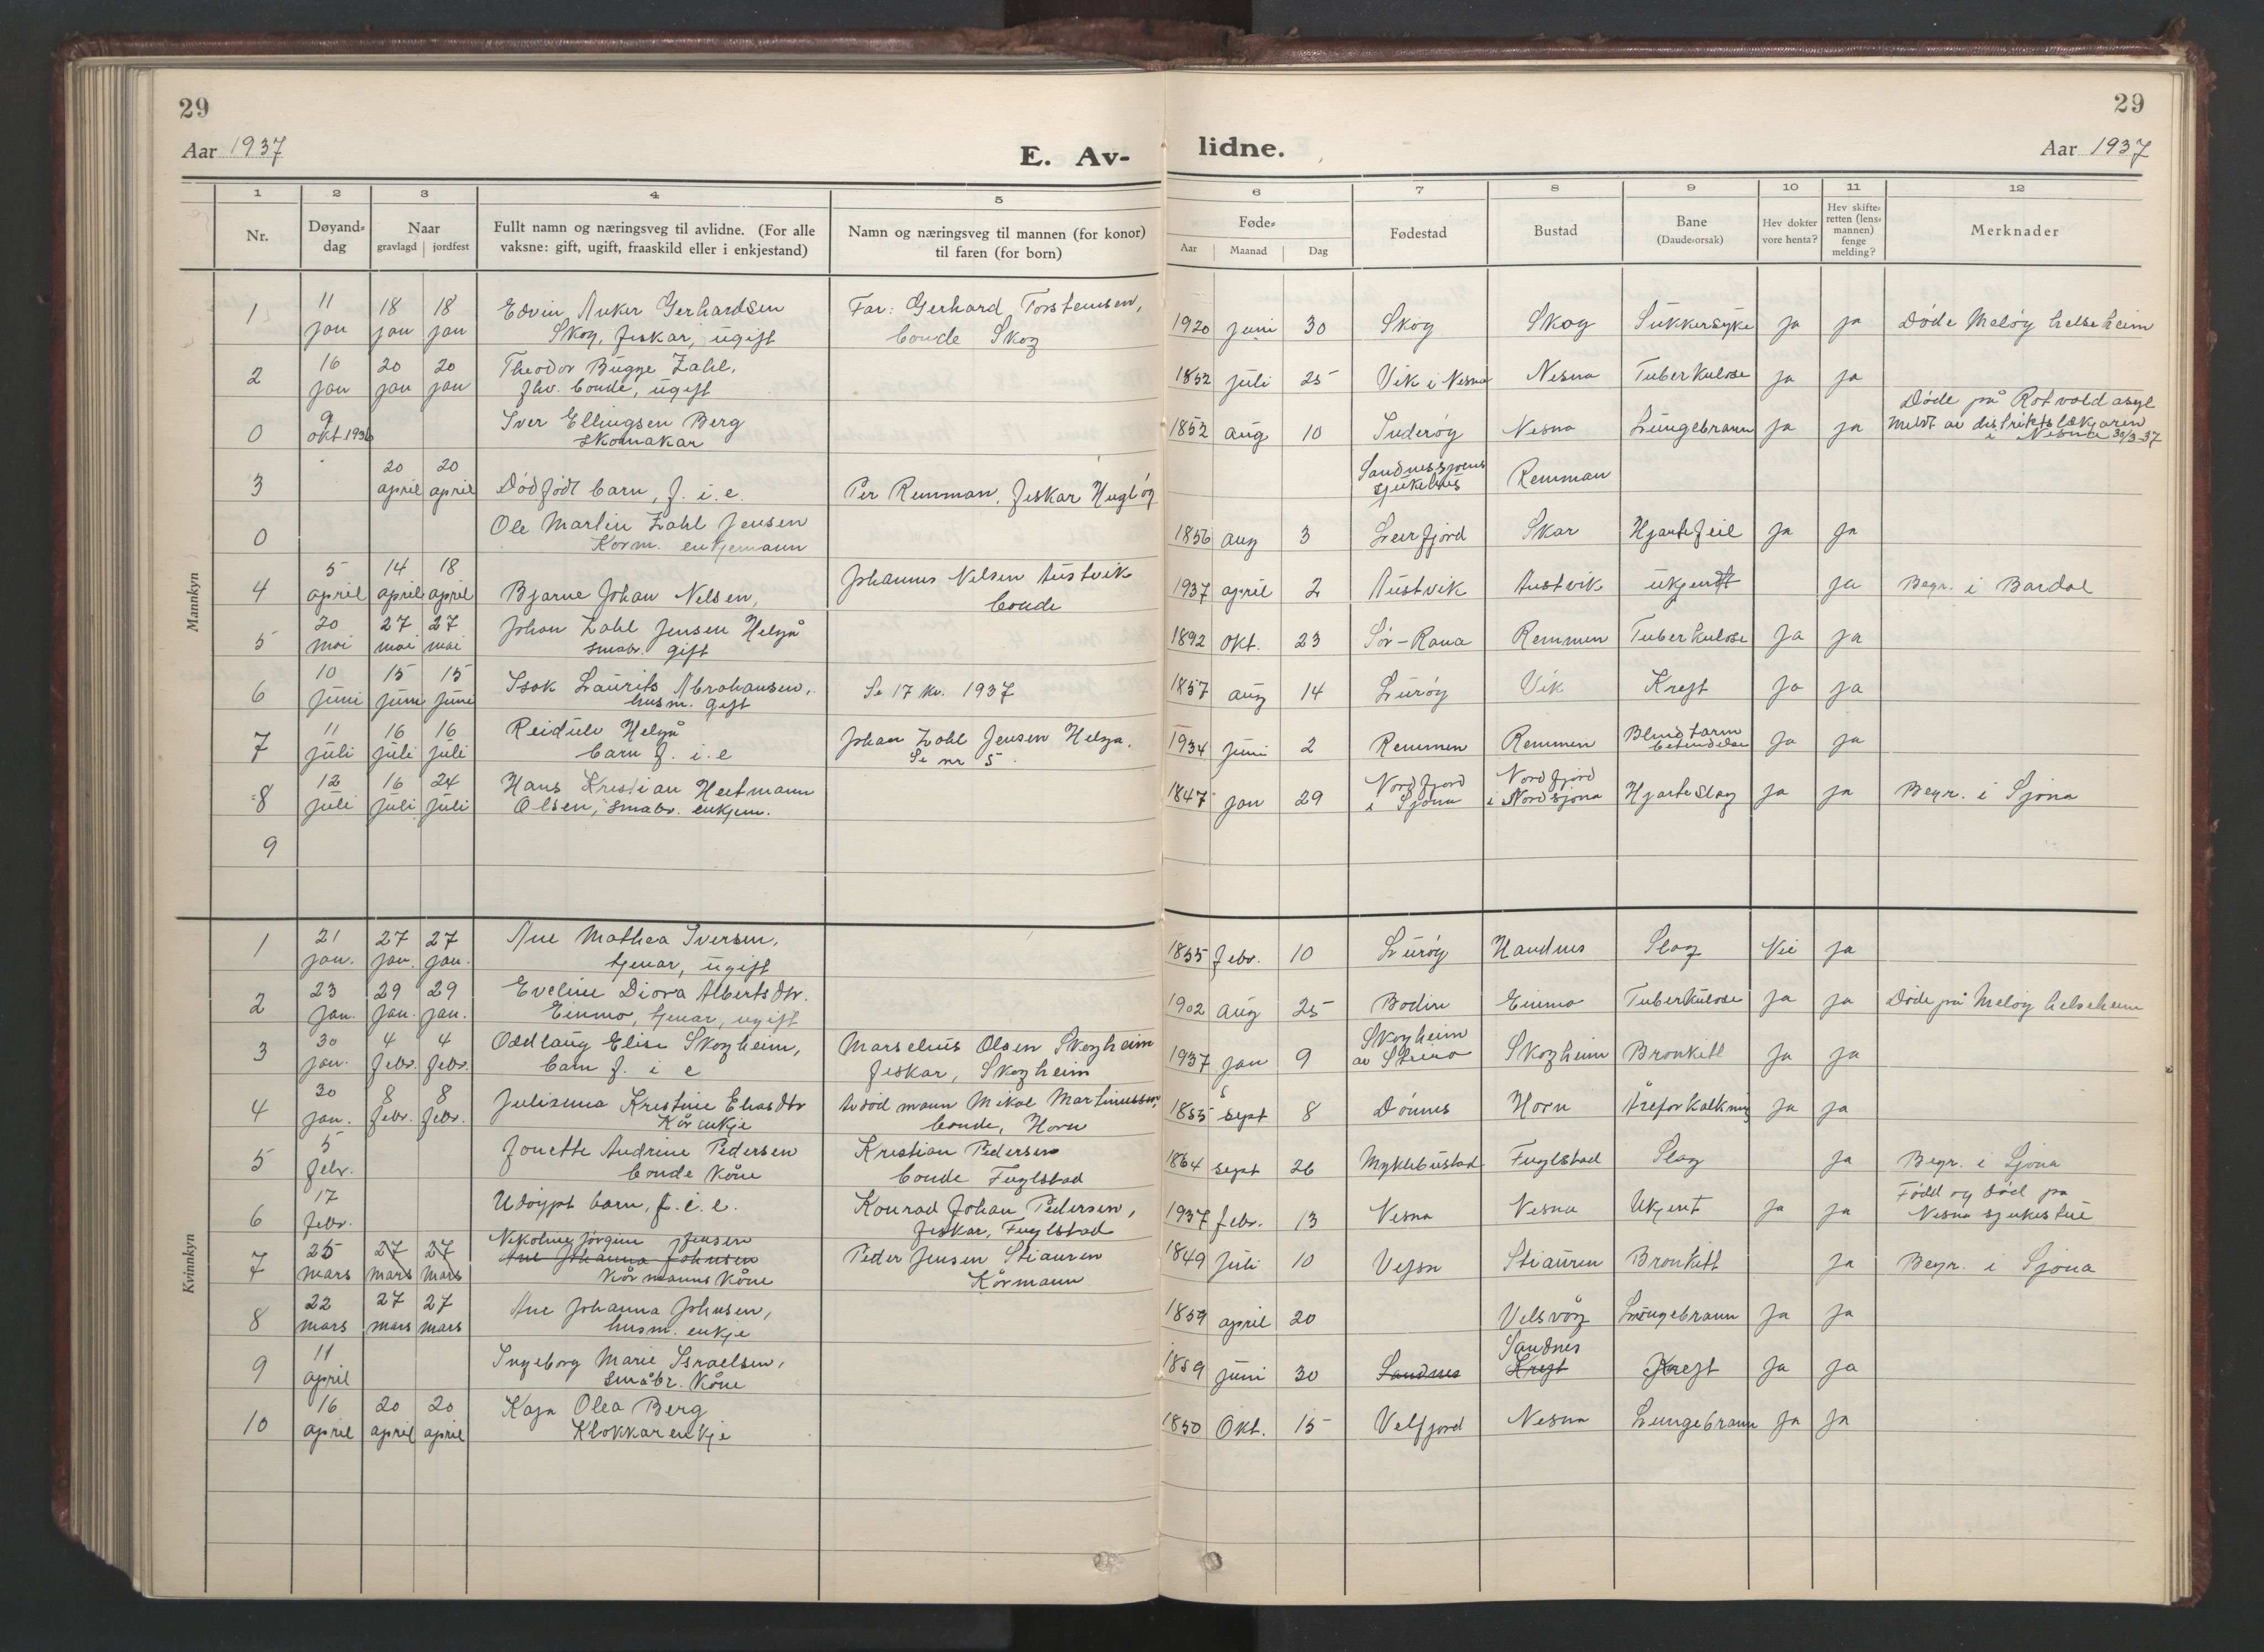 29
29
Aar 1937
E. Av-
lidne.
Aar 1937
1 2 3 4 5 6 7 8 9 10 11 12
Nr.
Døyand-
dag
Naar
gravlagd jordfest
Fullt namn og næringsveg til avlidne. (For alle
vaksne: gift, ugift, fraaskild eller i enkjestand)
Namn og næringsveg til mannen (for konor)
til faren (for born)
Føde-
Aar Maanad Dag
Fødestad
Bustad
Bane
(Daudeorsak)
Hev dokter
vore henta?
Hev skifte-
retten (lens-
mannen)
fenge
melding?
Merknader
Mannkyn
1 11 jan 18 jan 18 jan Edvin Anker Gerhardsen
Skog, fiskar, ugift
Far: Gerhard Torstensen,
bonde Skog
1920 juni 30 Skog Skog Sukkersyke ja ja Døde Meløy helseheim
2 16 jan 20 jan 20 jan Theodor Bugge Zahl,
fhv. bonde, ugift
1852 juli 25 Vik i Nesna Nesna Tuberkulose ja ja
0 9 okt. 1936 Iver Ellingsen Berg
skomakar
1852 aug 10 Inderøy Nesna Lungebrann ja ja
Døde på Rotvold asyl
meldt av distriktslækjaren
i Nesna 30/3-37
3 20 april 20 april Dødfødt barn, f. i. e. Per Remman, fiskar Hugløy
Sandnessjøens
sjukehus
Remman
0 Ole Martin Zahl Jensen
Korm. enkjemann
1856 aug 3 Leirfjord Skar Hjartefeil ja ja
4 5 april 14 april 18 april Bjarne Johan Nelsen,
Johannes Nelsen Austvik
bonde
1937 april 2 Austvik Austvik ukjendt ja Begr. i Bardal
5 20 mai 27 mai 27 mai Johan Zahl Jensen Helgå
småbr. gift
1892 okt. 23 Sør-Rana Remmen Tuberkulose ja ja
6 10 juni 15 juni 15 juni Isak Laurits Abrahamsen,
husm. gift
Se 17 kv. 1937
1857 aug 14 Lurøy Vik Kreft ja ja
7 11 juli 16 juli 16 juli Reidulv Helgå
barn f. i. e
Johan Zahl Jensen Helga.
Se nr 5.
1934 juni 2 Remmen Remmen Blindtarm
betendelse ja ja
8 12 juli 16 juli 24 juli Hans Kristian Heitmann
Olsen, småbr. enkjem.
1847 jan 29 Nordfjord
i Sjona
Nordfjord
i Nordsjona
Hjarteslag ja ja Begr. i Sjona
9
Kvinnkyn
1 21 jan. 27 jan. 27 jan. Ane Mathea Iversen,
tenar, ugift
1855 febr. 10 Lurøy Handnes Slag Nei ja
2 23 jan. 29 jan. 29 jan. Eveline Diora Albertsdtr.
Einmo, tenar, ugift
1902 aug 25 Bodin Einmo Tuberkulose ja ja Døde på Meløy helseheim
3 30 jan. 4 febr. 4 febr. Oddlaug Elise Skogheim,
barn f. i e
Marselius Olsen Skogheim
fiskar, Skogheim
1937 jan 9 Skogheim
Skogheim Bronkitt ja ja
4 30 jan. 8 febr. 8 febr. Julianna Kristine Eliasdtr
Kårenkje
Avdød mann Mikal Martinussen,
bonde, Horn
1855 sept 8 Dønnes Horn Åreforkalkning ja ja
5 5 febr. Jonette Andrine Pedersen
bonde kone
Kristian Pedersen
bonde Fuglstad
1864 sept 26 Myklebustad Fuglstad Slag ja Begr. i Sjona
6 17 febr. Udøypt barn, f. i. e. Konrad Johan Pedersen,
fiskar, Fuglstad
1937 febr. 13 Nesna Nesna Ukjent ja ja Född og död på
Nesna sjukestue
7 25 mars 27 mars 27 mars Nikoline Jørgine Jensen
Ane Johanna Johnsen
Kårmanns kone
Peder Jensen Stiauren
Kårmann
1849 juli 10 Vefsn Stiauren Bronkitt ja Begr. i Sjona
8 22 mars 27 mars 27 mars Ane Johanna Johnsen,
husm. enkje
1859 april 20 Velsvåg Lungebrann ja ja
9 11 april Ingeborg Marie Israelsen,
småbr. kone
1859 juni 30 Sandnes Sandnes
Kreft Kreft ja ja
10 16 april 20 april 20 april Kaja Olea Berg
Klokkarenkje
1850 Okt. 15 Velfjord Nesna Lungebrann ja ja